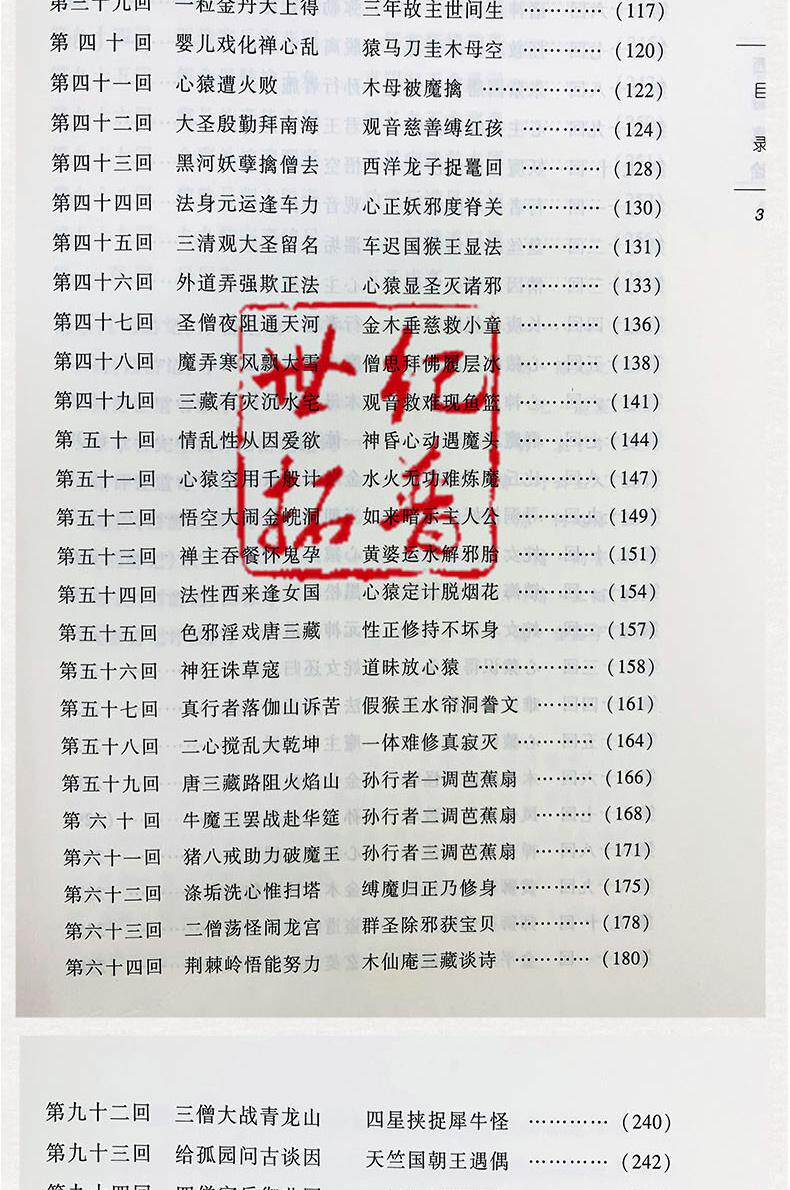 第三十九回 一粒金丹天上得 三年故主世间生 ………… (117)
第四十回 婴儿戏化禅心乱 猿马刀圭木母空 ………… (120)
第四十一回 心猿遭火败 木母被魔擒 ……………… (122)
第四十二回 大圣殷勤拜南海 观音慈善缚红孩 ………… (124)
第四十三回 黑河妖孽擒僧去 西洋龙子捉鼍回 ………… (128)
第四十四回 法身元运逢车力 心正妖邪度脊关 ………… (130)
第四十五回 三清观大圣留名 车迟国猴王显法 ………… (131)
第四十六回 外道弄强欺正法 心猿显圣灭诸邪 ………… (133)
第四十七回 圣僧夜阻通天河 金木垂慈救小童 ………… (136)
第四十八回 魔弄寒风飘大雪 僧思拜佛履层冰 ………… (138)
第四十九回 三藏有灾沉水宅 观音救难现鱼篮 ………… (141)
第五十回 情乱性从因爱欲 神昏心动遇魔头 ………… (144)
第五十一回 心猿空用千般计 水火无功难炼魔 ………… (147)
第五十二回 悟空大闹金𫭟洞 如来暗示主人公 ………… (149)
第五十三回 禅主吞餐怀鬼孕 黄婆运水解邪胎 ………… (151)
第五十四回 法性西来逢女国 心猿定计脱烟花 ………… (154)
第五十五回 色邪淫戏唐三藏 性正修持不坏身 ………… (157)
第五十六回 神狂诛草寇 道昧放心猿 ……………… (158)
第五十七回 真行者落伽山诉苦 假猴王水帘洞誊文 ……… (161)
第五十八回 二心搅乱大乾坤 一体难修真寂灭 ………… (164)
第五十九回 唐三藏路阻火焰山 孙行者一调芭蕉扇 ……… (166)
第六十回 牛魔王罢战赴华筵 孙行者二调芭蕉扇 ……… (168)
第六十一回 猪八戒助力破魔王 孙行者三调芭蕉扇 ……… (171)
第六十二回 涤垢洗心惟扫塔 缚魔归正乃修身 ………… (175)
第六十三回 二僧荡怪闹龙宫 群圣除邪获宝贝 ………… (178)
第六十四回 荆棘岭悟能努力 木仙庵三藏谈诗 ………… (180)
目录
3
世纪
拓普
第九十二回 三僧大战青龙山 四星挟捉犀牛怪 ………… (240)
第九十三回 给孤园问古谈因 天竺国朝王遇偶 ………… (242)